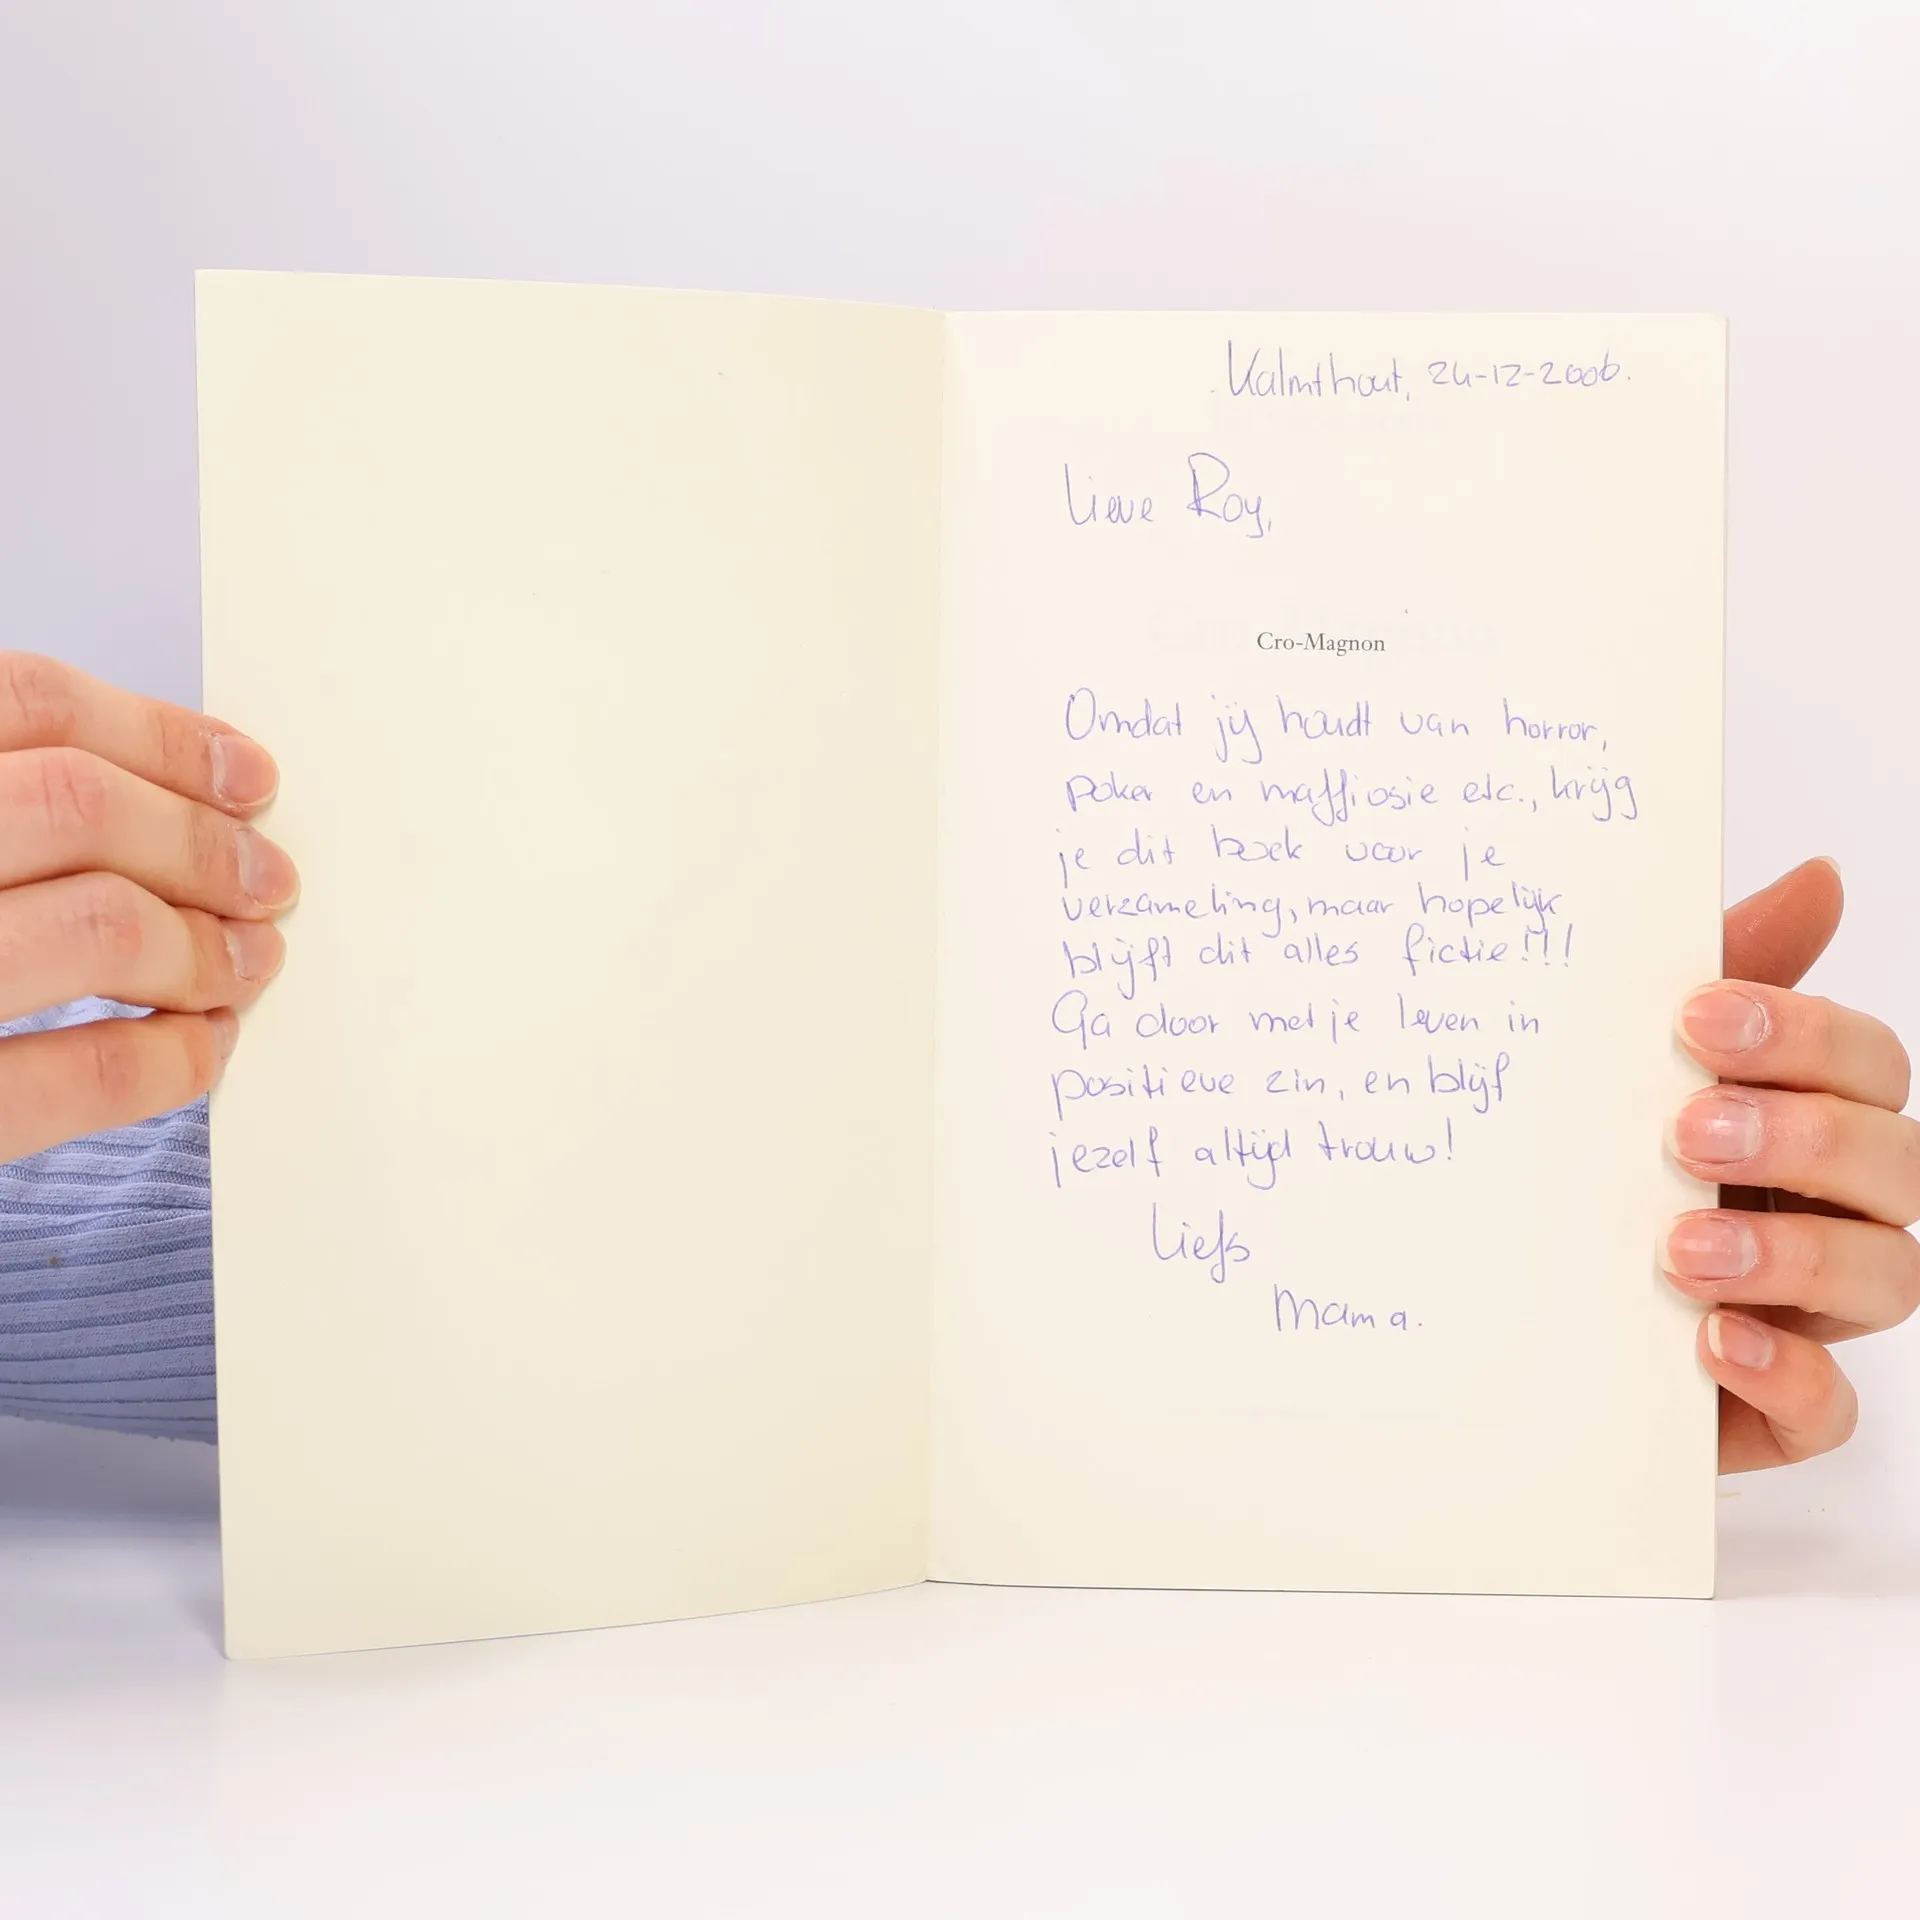 Kalmthout, 24-12-2006.
Lieve Roy,
Cro-Magnon
Omdat jij houdt van horror,
poker en maffiosie etc., krijg
je dit boek voor je
verzameling, maar hopelijk
blijft dit alles fictie!!!
Ga door met je leven in
positieve zin, en blijf
jezelf altijd trouw!
Liefs
Mama.